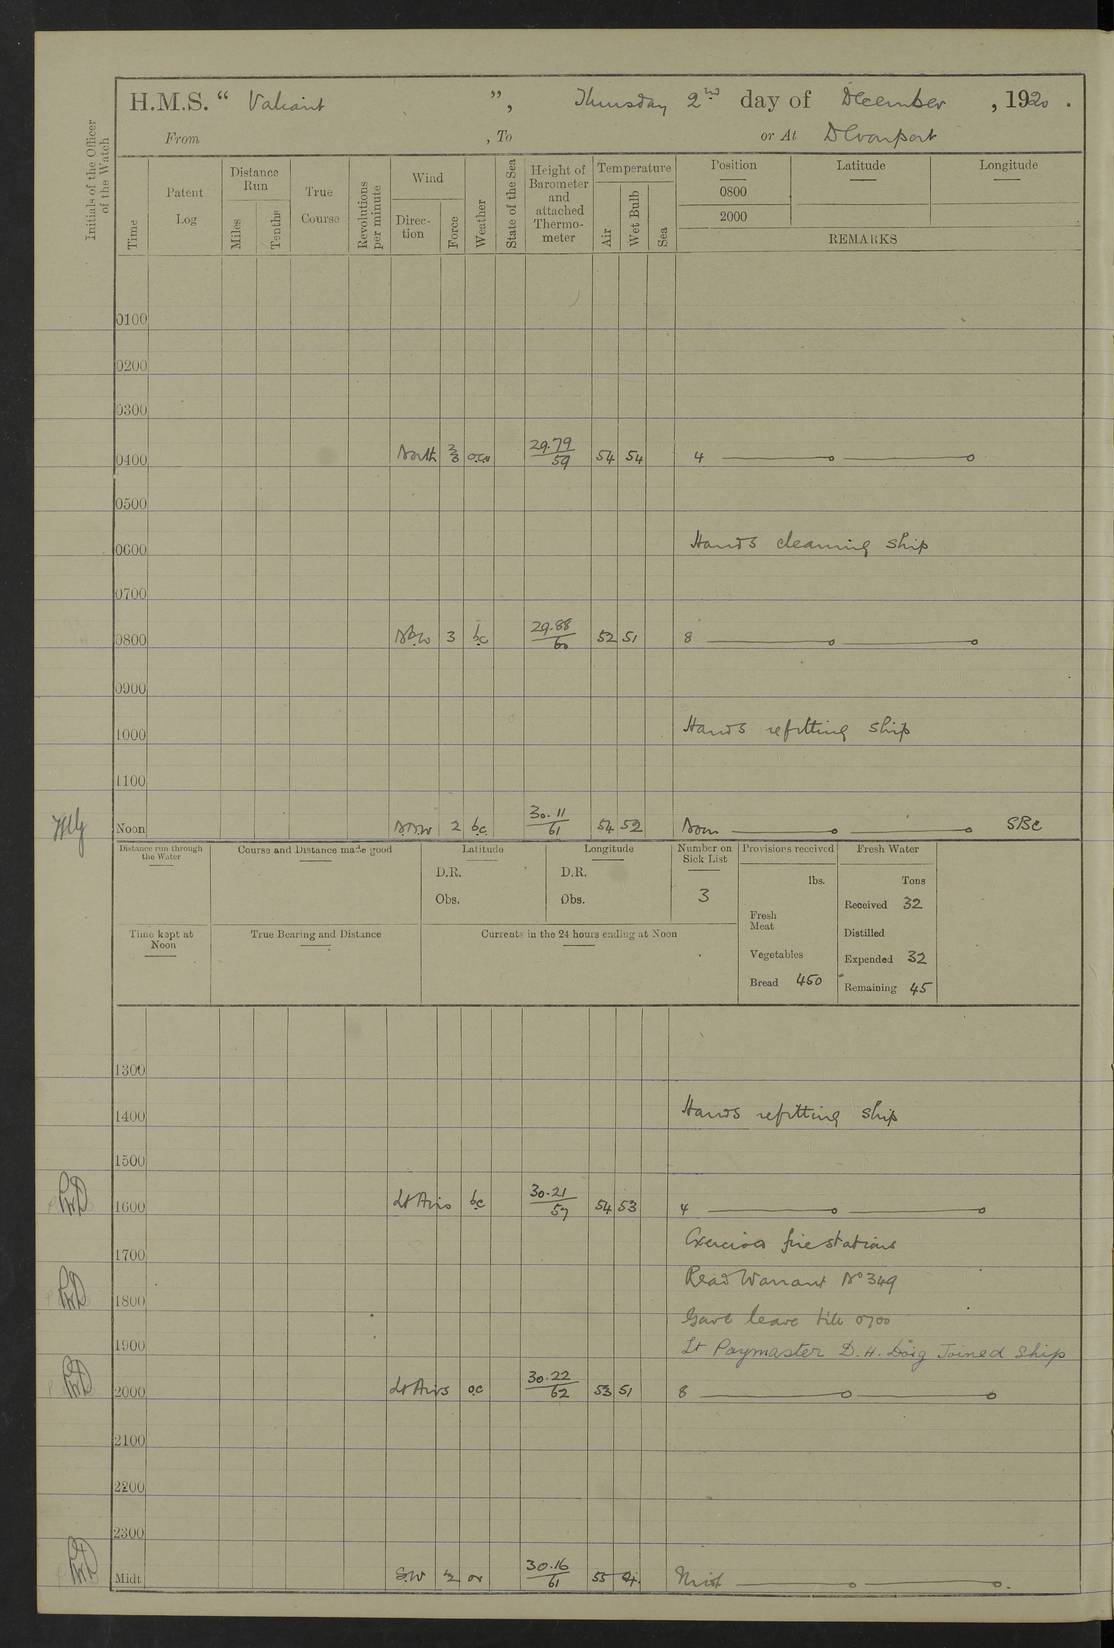 H.M.S. “ Valiant ”, Thursday 2nd day of December , 1920 .
From , To or At Devonport
Initials of the Officer of the Watch
Time
Patent Log
Distance Run
Miles
Tenths
True Course
Revolutions per minute
Wind
Direc-tion
Force
Weather
State of the Sea
Height of Barometer and attached Thermo-meter
Temperature
Air
Wet Bulb
Sea
Position Latitude Longitude
0800
2000
REMARKS
0100
0200
0300
0400 North 2/3 29.79/59 54 54 4
0500
0600 Hands cleaning ship
0700
0800 3 bc 29.88/60 52 51 8
0900
1000 Hands refitting ship
1100
Noon NNW 2 bc 30.11/61 54 52 Noon SBC
Distance run through the Water
Course and Distance made good
Latitude
D.R.
Obs.
Longitude
D.R.
Obs.
Number on Sick List
3
Provisions received
lbs.
Fresh Meat
Vegetables
Bread 450
Fresh Water
Tons
Received 32
Distilled
Expended 32
Remaining 45
Time kept at Noon
True Bearing and Distance
Currents in the 24 hours ending at Noon
1300
1400 Hands refitting ship
1500
1600 Lt Airs bc 30.21/57 54 53 4
Exercised fire stations
1700
Read Warrant No 349
1800
Gave leave till 0700
1900 Lt Paymaster D. H. Doig Joined Ship
2000 Lt Airs oc 30.22/62 53 51 8
2100
2200
2300
Midt S.W 30.16/61 55 Midt